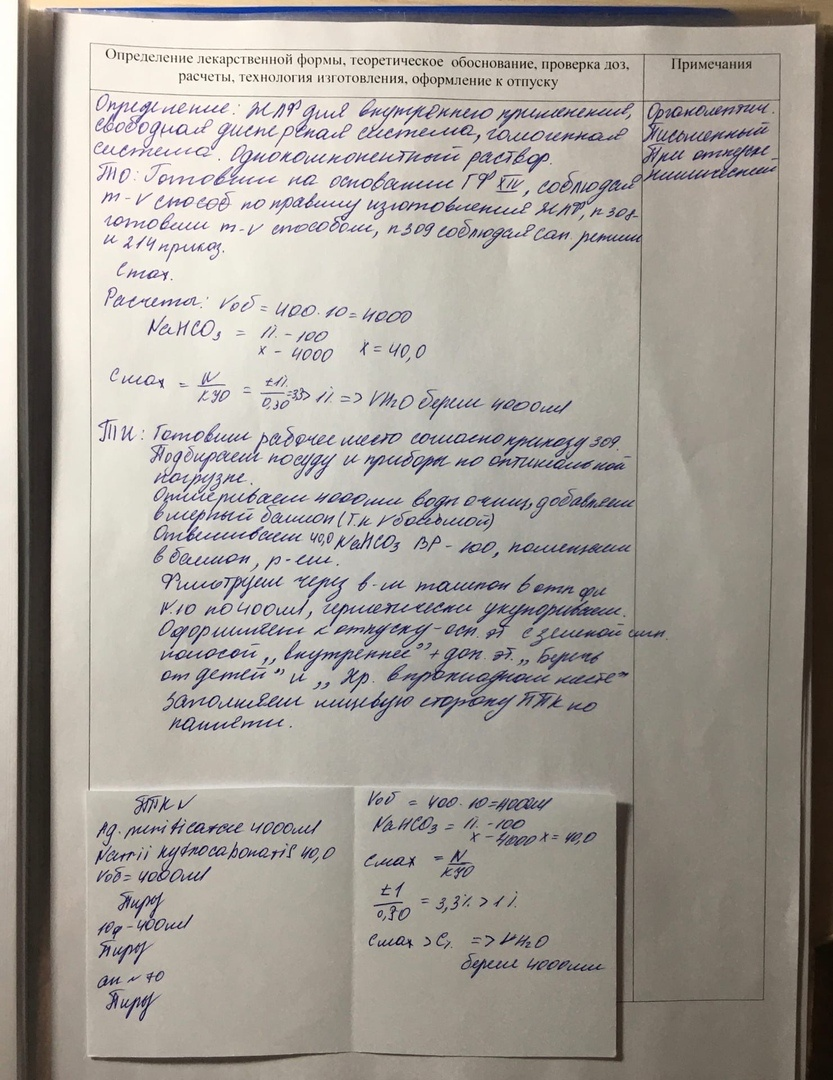 Определение лекарственной формы, теоретическое обоснование, проверка доз,
расчеты, технология изготовления, оформление к отпуску
Примечания
Определение: ЖЛФ для внутреннего применения,
свободная дисперсная система, гомогенная
система. Однокомпонентный раствор.
ТО: Готовим на основании ГФ XIV, соблюдая
m-V способ по правилу изготовления ЖЛФ, п 308
готовим m-V способом, п 309 соблюдая сан. режим
и 214 приказ.
Cmax.
Органолептич.
Письменный
При отпуске
Химический
Расчеты: Vоб = 400 · 10 = 4000
NaHCO3 = 1г. - 100
x - 4000 x = 40,0
Cmax = N/КУО = ±1%/0,30 = 3,3 > 1% => VH2O берем 4000мл
ТИ: Готовим рабочее место согласно приказу 309.
Подбираем посуду и приборы по оптимальной
нагрузке.
Отмериваем 4000мл воды очищ, добавляем
в мерный баллон (т.к V большой)
Отвешиваем 40,0 NaHCO3 ВР-100, помещаем
в баллон, р-ем.
Фильтруем через в-м тампон в отп фл
N.10 по 400мл, герметически укупориваем.
Оформляем к отпуску-осн. эт с зеленой сигн.
полосой „внутреннее" + доп. эт. „Беречь
от детей" и „Хр. в прохладном месте"
Заполняем лицевую сторону ППК по
памяти.
ППК N
Ag. purificatae 4000мл
Natrii hydrocabonatis 40,0
Vоб = 4000мл
10ф - 400мл
Vоб = 400 · 10 = 4000мл
NaHCO3 = 1г. - 100
x - 4000 x = 40,0
Cmax = N/КУО
±1/0,30 = 3,3% > 1%
Cmax > C% => VH2O
берем 4000мл